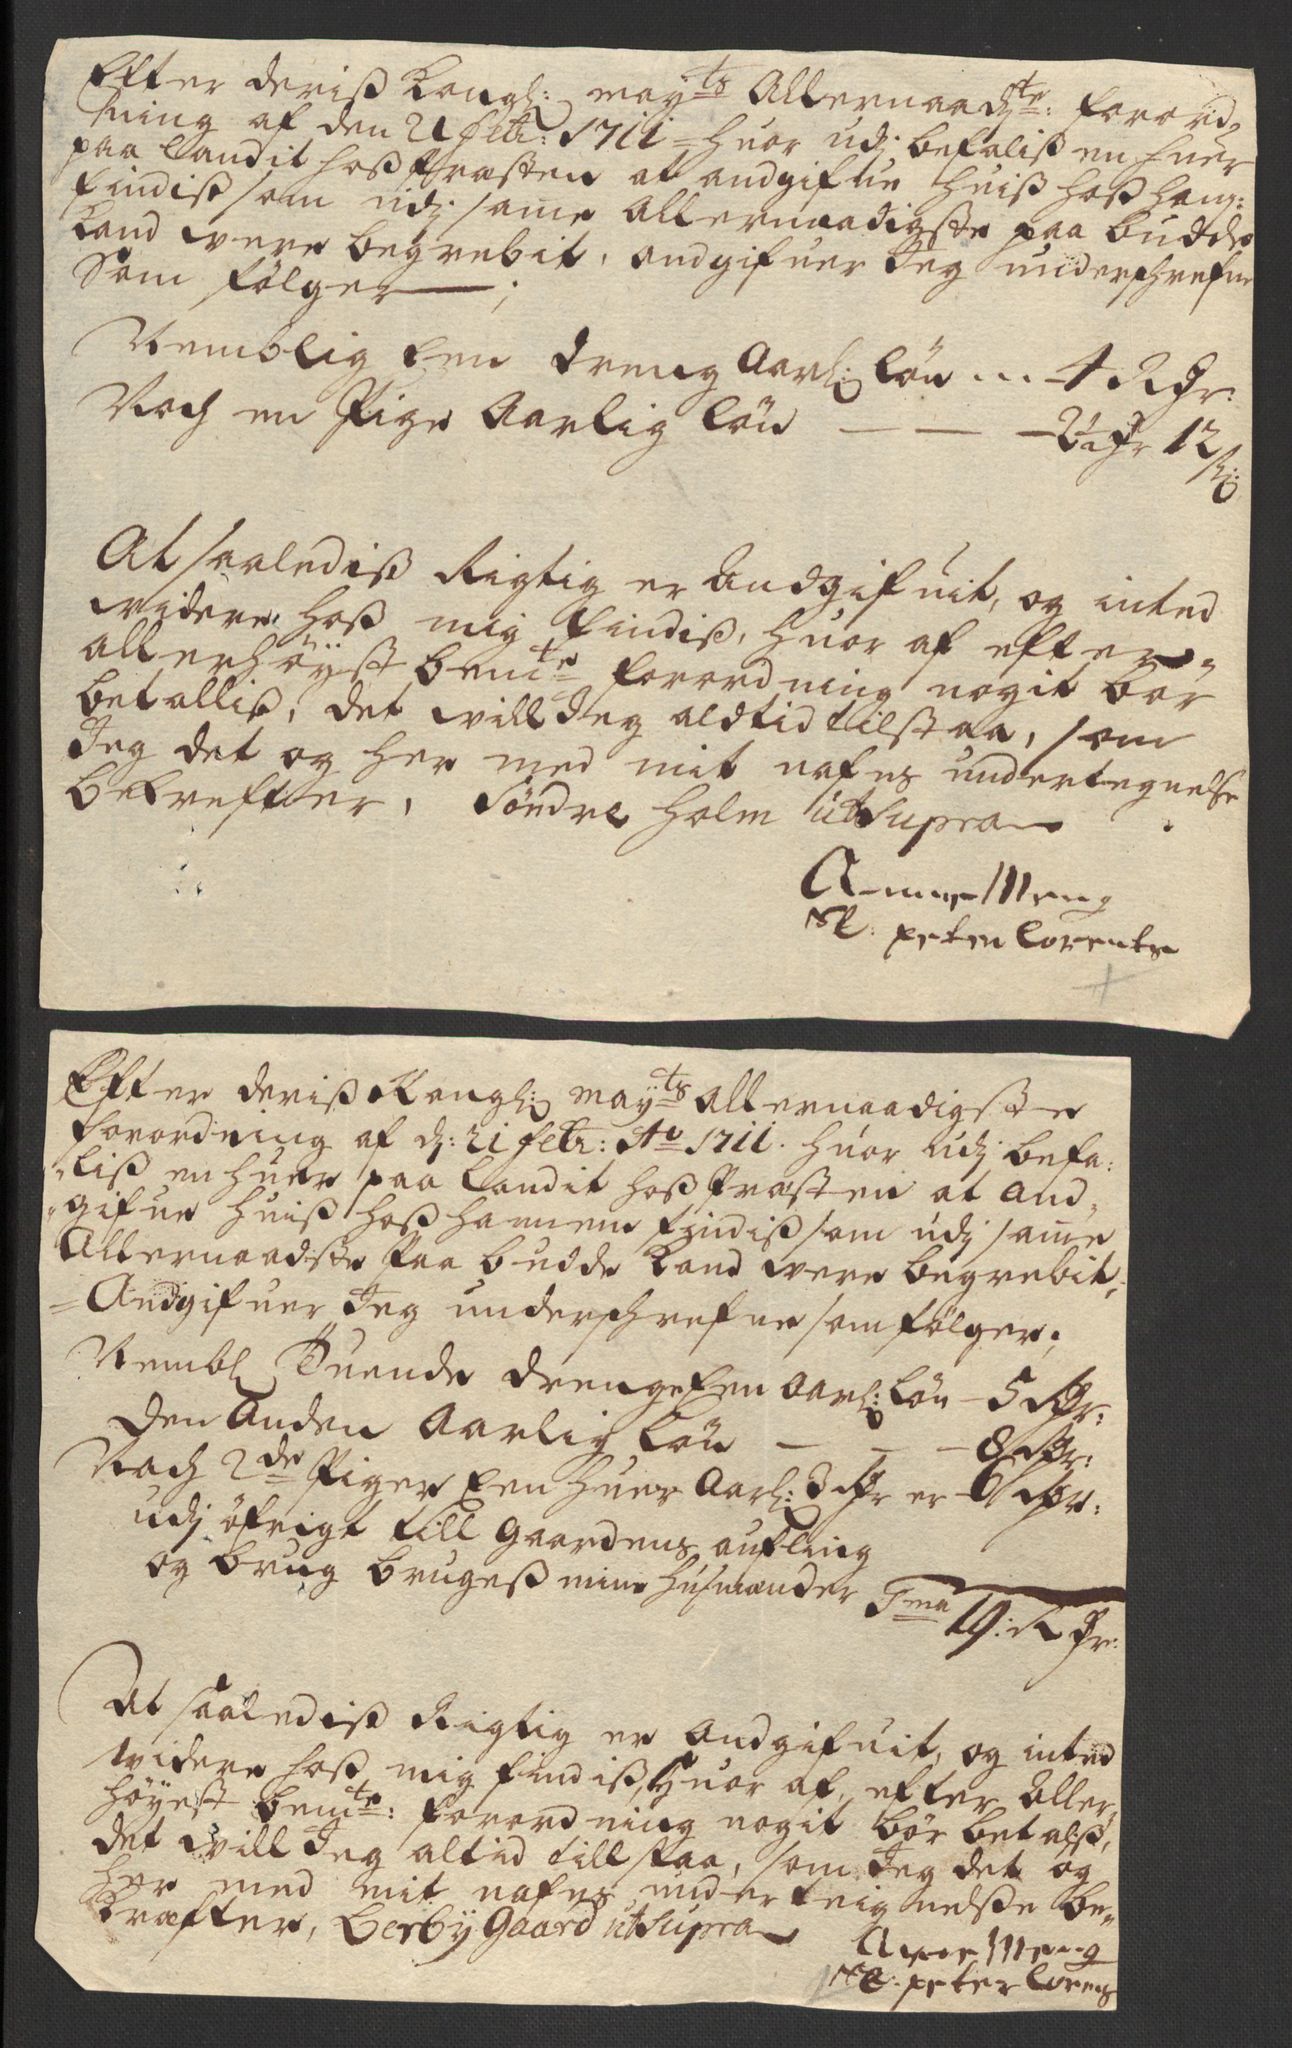 Efter deriß Kongl: mayts Allernaadste: forord,
ning af den 21 febr: 1711 = huor udj befaliß en huer
paa landit hoß Præsten at andgifue huiß hoß ham:
findiß som udj same allernaadigste paa budde
kand vere begrebit, andgifuer Jeg underschrefne
Som følger;
Nemblig Een dreng Aarl: løn ... 4 Rdr:
Noch en Pige Aarlig løn — — — 2 rdr 12
ß:
At saalediß Rigtig er Andgifuit, og inted
videre hoß mig findiß, huor af efter
allerhøyst bemte forordning nogit bør
betalliß, det vill Jeg aldtid tilstaa, som
Jeg det og her med mit nafns undertegnelse
bekrefter, Söndre holm ut Supra
Anne Meng
Sl. peter Lorents
Efter deriß Kongl: mayts allernaadigste
forordning af d: 21 febr: Ao 1711. huor udj befa:
liß en huer paa landit hoß Præsten at and,
gifue huiß hoß hannem findiß som udj same
Allernaadste Paa budde kand vere begrebit,
= Andgifuer Jeg underschrefne som følger;
Nembl Tuende drenge Een Aarl: løn — 5 Rdr:
Den Anden Aarlig løn — — — 8 Rdr:
Noch 2de Piger Een huer Aarl: 3 Rdr er — 6 Rdr:
udj øfrigt till Gaardens aufling
og brug brugeß mine huusmænder Sma 19: Rdr:
At saalediß Rigtig er Andgifuit, og inted
videre hoß mig findiß, Huor af, efter Aller,
høyest bemte: forordning nogit bør betalß,
det vill Jeg altid till staa, som Jeg det og
her med mit nafns underteignelse be,
kræfter, Berby Gaard ut Supra
Anne Meng
Sl. peter Lorens